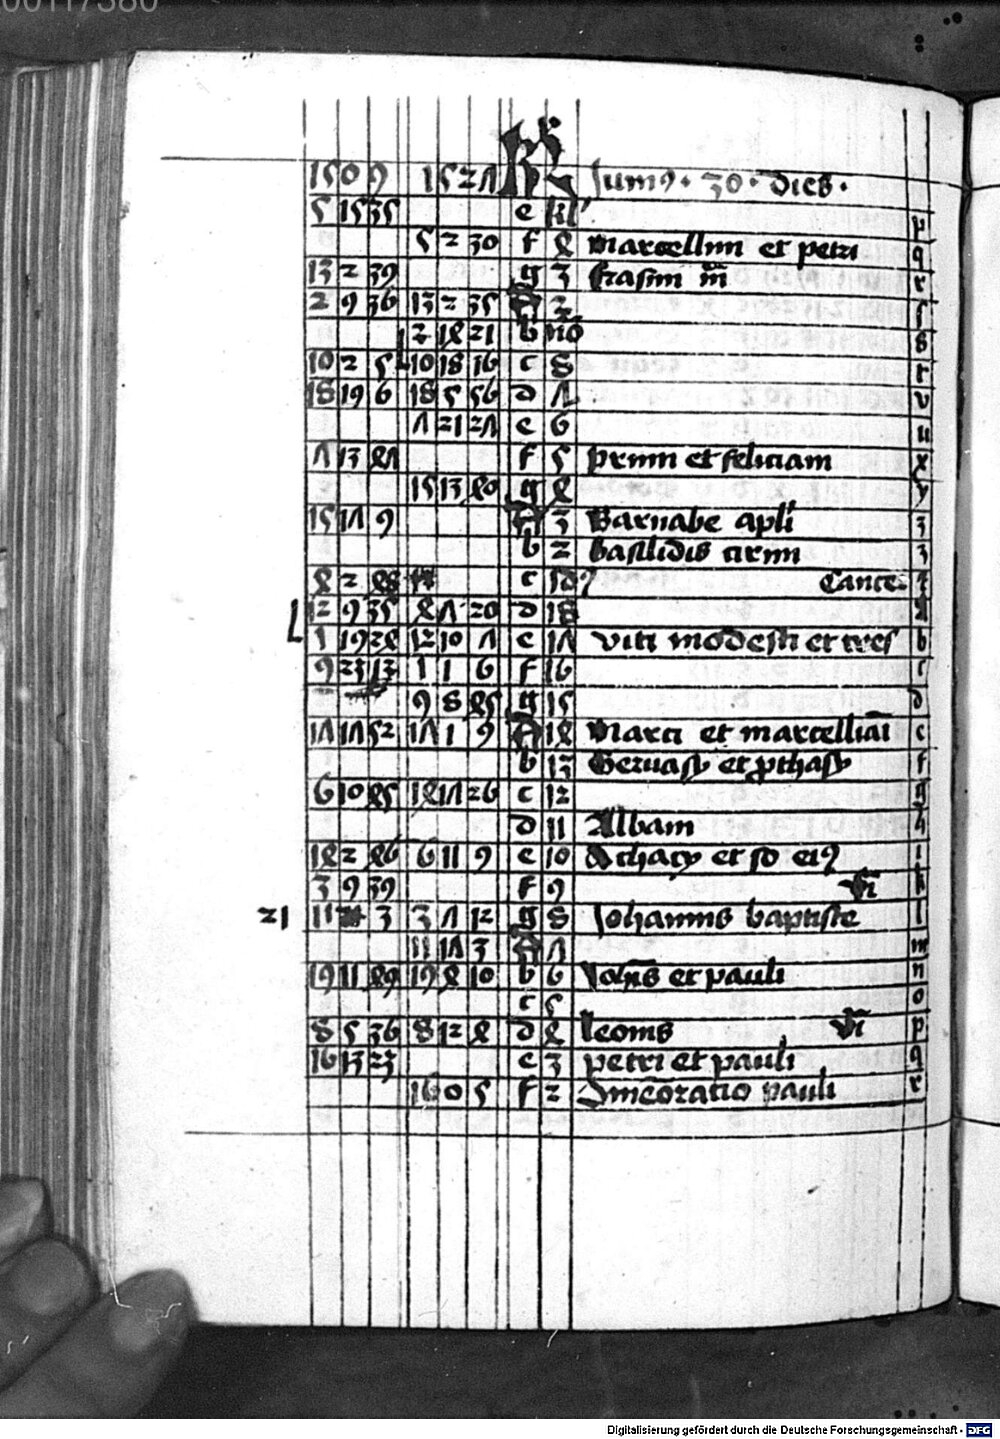 00117380
1509 1527 KL Juni9 · 30 · dies ·
5 15 35 e kl' p
5 2 30 f 4 Marcellini et petri q
13 2 39 g 3 Erasmi m r
2 9 36 13 2 35 A 2 ſ
2 14 21 b no s
10 2 5 10 18 16 c 8 t
18 19 6 18 5 56 d 7 v
7 21 27 e 6 u
7 13 47 f 5 primi et feliciani x
15 13 40 g 4 y
15 17 9 A 3 Barnabe apli z
b 2 basilidis cirini 3
4 2 48 c Id9 Cance
12 9 35 4 7 20 d 18 A
1 19 24 12 10 7 e 17 viti modesti et cres b
9 23 13 1 1 6 f 16 c
9 8 45 g 15 d
17 17 52 17 1 9 A 14 Marci et marcelliani e
b 13 Gervasy et pthasy f
6 10 45 14 17 26 c 12 g
d 11 Albani h
14 2 46 6 11 9 e 10 Achacy et so ei9 i
3 9 39 f 9 k
21 11 3 3 7 12 g 8 Johannis baptiste l
11 17 3 A 7 m
19 11 49 19 4 10 b 6 Johis et pauli n
c 5 o
8 5 36 8 12 4 d 4 leonis p
16 13 23 e 3 petri et pauli q
16 0 5 f 2 Omeoratio pauli r
Digitalisierung gefördert durch die Deutsche Forschungsgemeinschaft - DFG